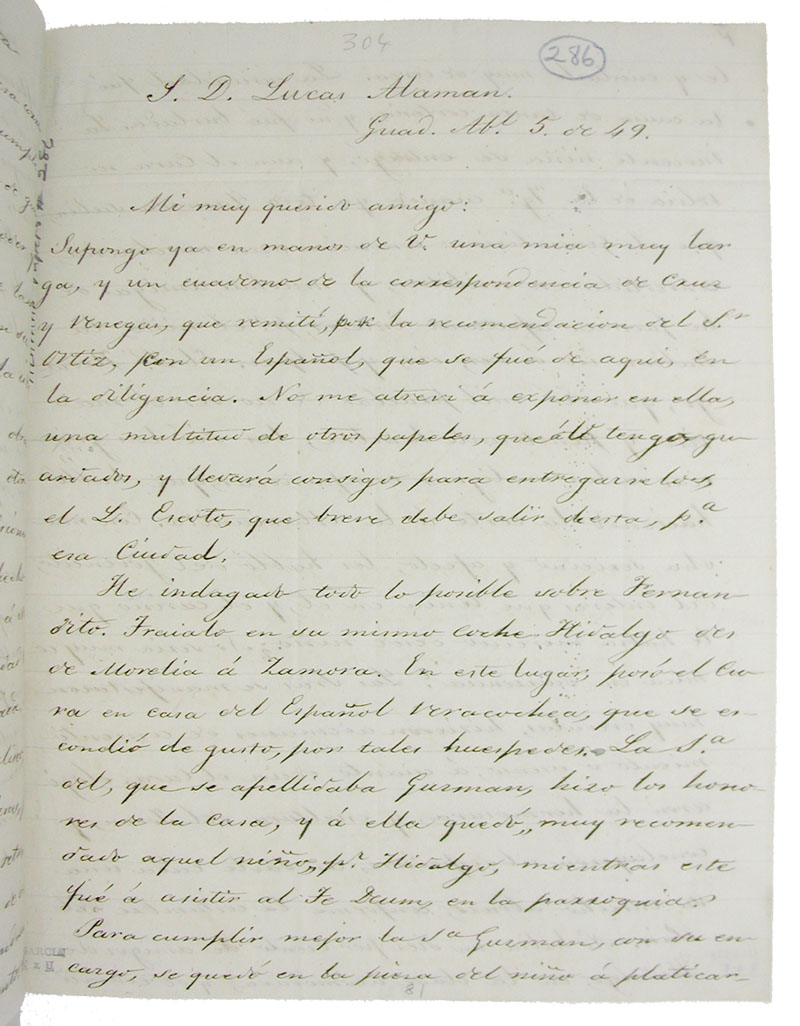 304
286
S. D. Lucas Alaman.
Guad. Ab.l 5. de 49.
Mi muy querido amigo:
Supongo ya en manos de V. una mia muy lar
ga, y un cuaderno de la correspondencia de Cruz
y Venegas, que remití, por la recomendacion del S.r
Ortiz, con un Español, que se fué de aqui, en
la diligencia. No me atreví á exponer en ella,
una multitud de otros papeles, que allí tengo, gu
ardados, y llevará consigo, para entregarselos,
el L. Escoto, que breve debe salir de esta, p.a
esa Ciudad.
He indagado todo lo posible sobre Fernan-
dito. Traialo en su mismo coche Hidalgo des
de Morelia á Zamora. En este lugar, posó el Cu-
ra en casa del Español Veracochea, que se es-
condió de gusto, por tales huespedes. La S.a
del, que se apellidaba Guzman, hizo los hono-
res de la casa, y á ella quedó,, muy recomen-
dado aquel niño,, p.r Hidalgo, mientras este
fué á asistir al Te Deum, en la parroquia.
Para cumplir mejor la S.a Guzman, con su en
cargo, se quedó en la pieza del niño á platicar-
81